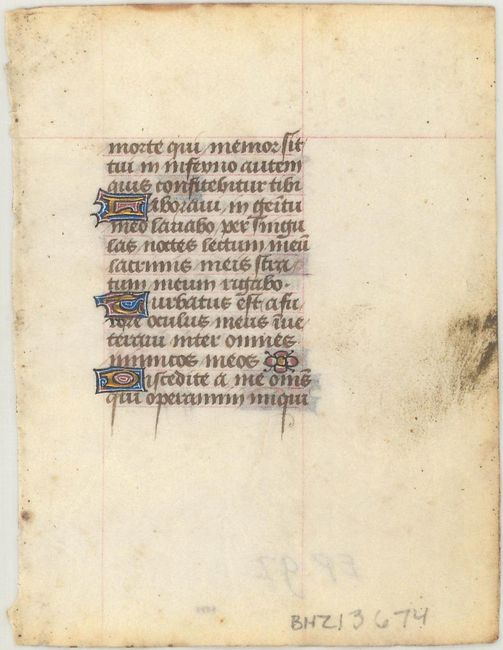 morte qui memor sit
tui in inferno autem
quis confitebitur tibi
Laboravi in gemitu
meo lavabo per singu
las noctes lectum meū
lacrimis meis stra
tum meum rigabo.
Turbatus est a fu
rore oculus meus īve
teravi inter omnes
inimicos meos
Discedite a me omēs
qui operamini iniqui
EP 97
BHZ13674